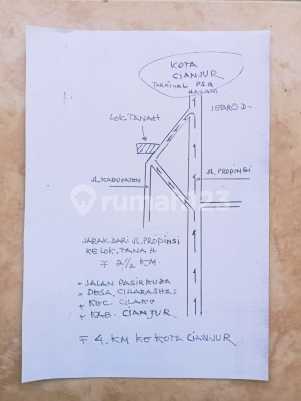 KOTA
CIANJUR
TERMINAL PSR
LOK.TANAH
JL.KABUPATEN
JL.PROPINSI
rumah123
JARAK DARI JL.PROPINSI
KE LOK.TANAH
∓ 2½ KM.
JALAN PASIRKUDA
DESA, CIHARASHAS
KEC. CILAKU
KAB. CIANJUR
∓ 4. KM KE KOTA CIANJUR